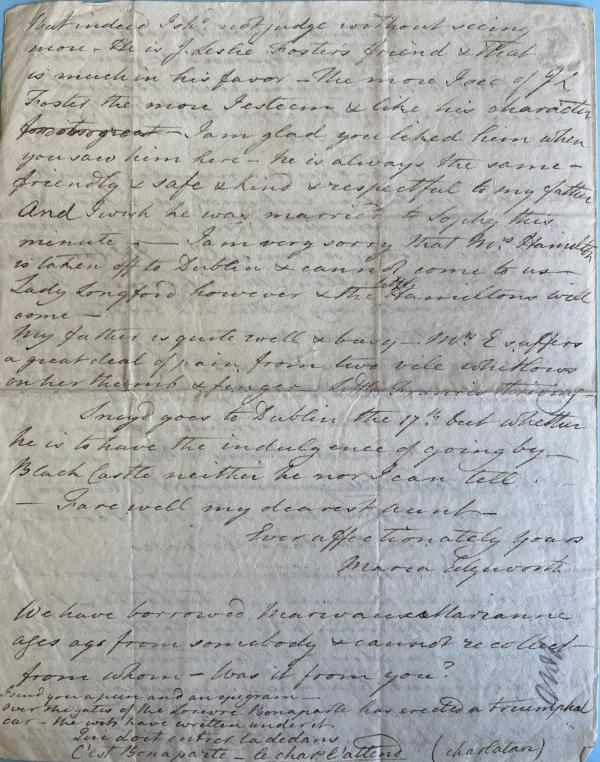 But indeed I shd. not judge without seeing
more – He is J. Leslie Foster's friend & that
is much in his favor – The more I see of J L
Foster the more I esteem & like his character
I am glad you liked him when
you saw him here – he is always the same –
friendly & safe & kind & respectful to my father
And I wish he was married to Sophy this
minute – I am very sorry that Mrs. Hamilton
is taken off to Dublin & cannot come to us –
Lady Longford however & the Hamiltons will
come –
My father is quite well & busy – Mrs. E suffers
a great deal of pain from two vile whitlows
on her thumb & finger – Little Francis thriving –
Sneyd goes to Dublin the 17th. but whether
he is to have the indulgence of going by –
Black Castle neither he nor I can tell.
– Farewell my dearest aunt –
Ever affectionately yours
Maria Edgeworth
We have borrowed Marivaux Marianne
ages ago from somebody & cannot recollect
from whom – Was it from you?
I send you a pun and an epigram –
Over the gates of the Louvre Bonaparte has erected a triumphal
car – the wits have written under it.
Qui doit entrer la dedans
C'est Bonaparte – le char l'attend (charlatan)